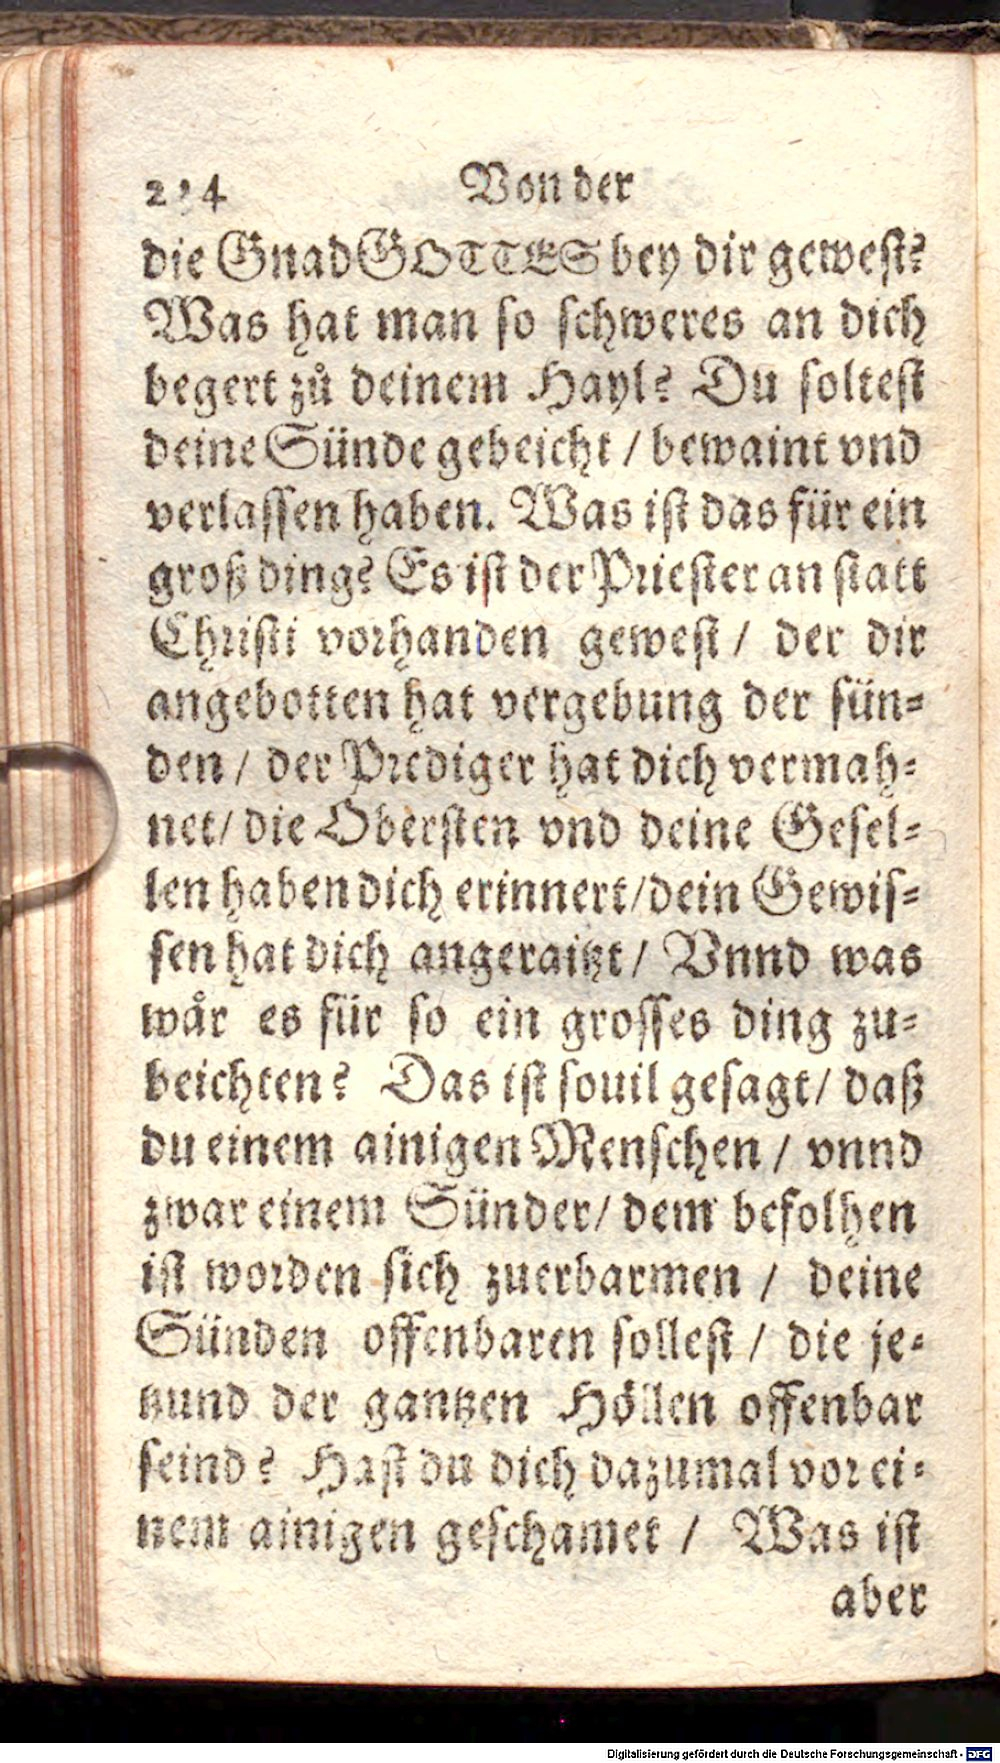 214 Von der
die Gnad GOTTES bey dir gewest?
Was hat man so schweres an dich
begert zů deinem Hayl? Du soltest
deine Sünde gebeicht / bewaint vnd
verlassen haben. Was ist das für ein
groß ding? Es ist der Priester an statt
Christi vorhanden gewest / der dir
angebotten hat vergebung der sün-
den / der Prediger hat dich vermah-
net / die Obersten vnd deine Gesel-
len haben dich erinnert / dein Gewis-
sen hat dich angeraitzt / Vnnd was
wår es für so ein grosses ding zu-
beichten? Das ist souil gesagt / daß
du einem ainigen Menschen / vnnd
zwar einem Sünder / dem befolhen
ist worden sich zuerbarmen / deine
Sünden offenbaren sollest / die je-
tzund der gantzen Höllen offenbar
seind? Hast du dich dazumal vor ei-
nem ainigen geschamet / Was ist
aber
Digitalisierung gefördert durch die Deutsche Forschungsgemeinschaft - DFG